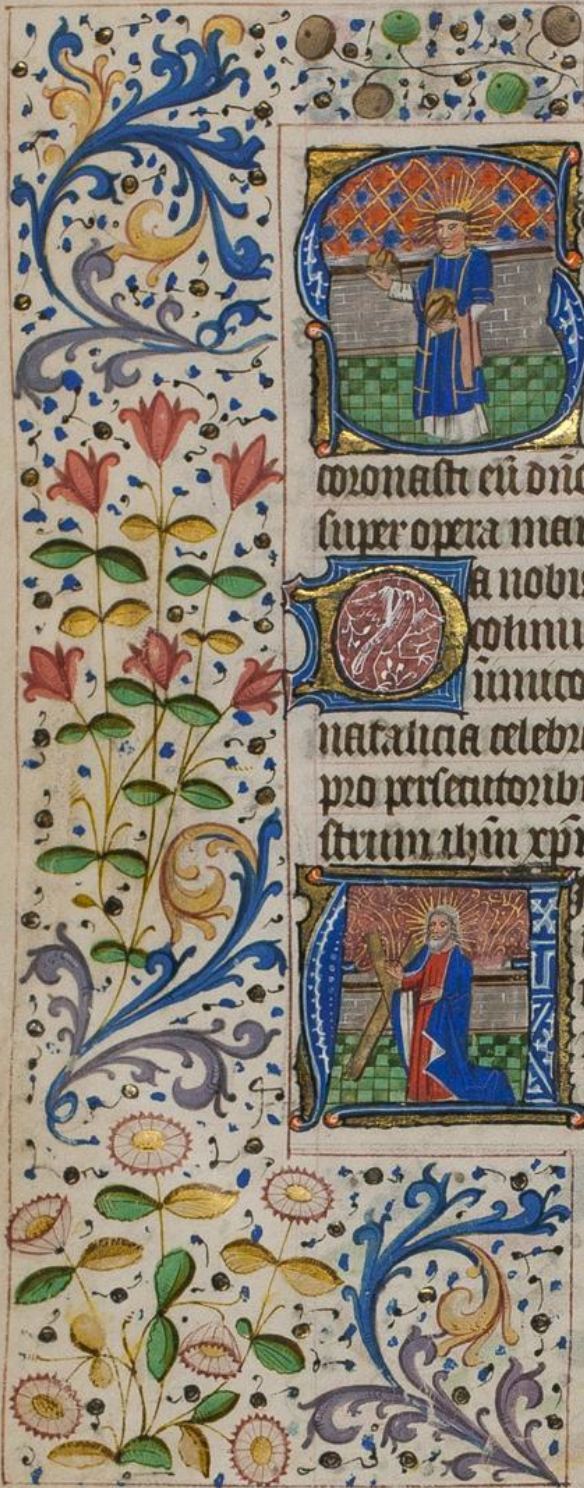 S
coronasti eū dn̄e
super opera man
Da nobis
colimu
inimico
natalicia celebra
pro persecutoribu
strum ihm̄ xpm̄
A